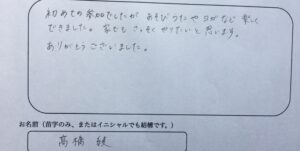 初めての参加でしたが あそびうたや ヨガなど 楽しく
できました。家でも さっそく やりたいと 思います。
ありがとうございました。
お名前（苗字のみ、またはイニシャルでも結構です。）
高橋 綾